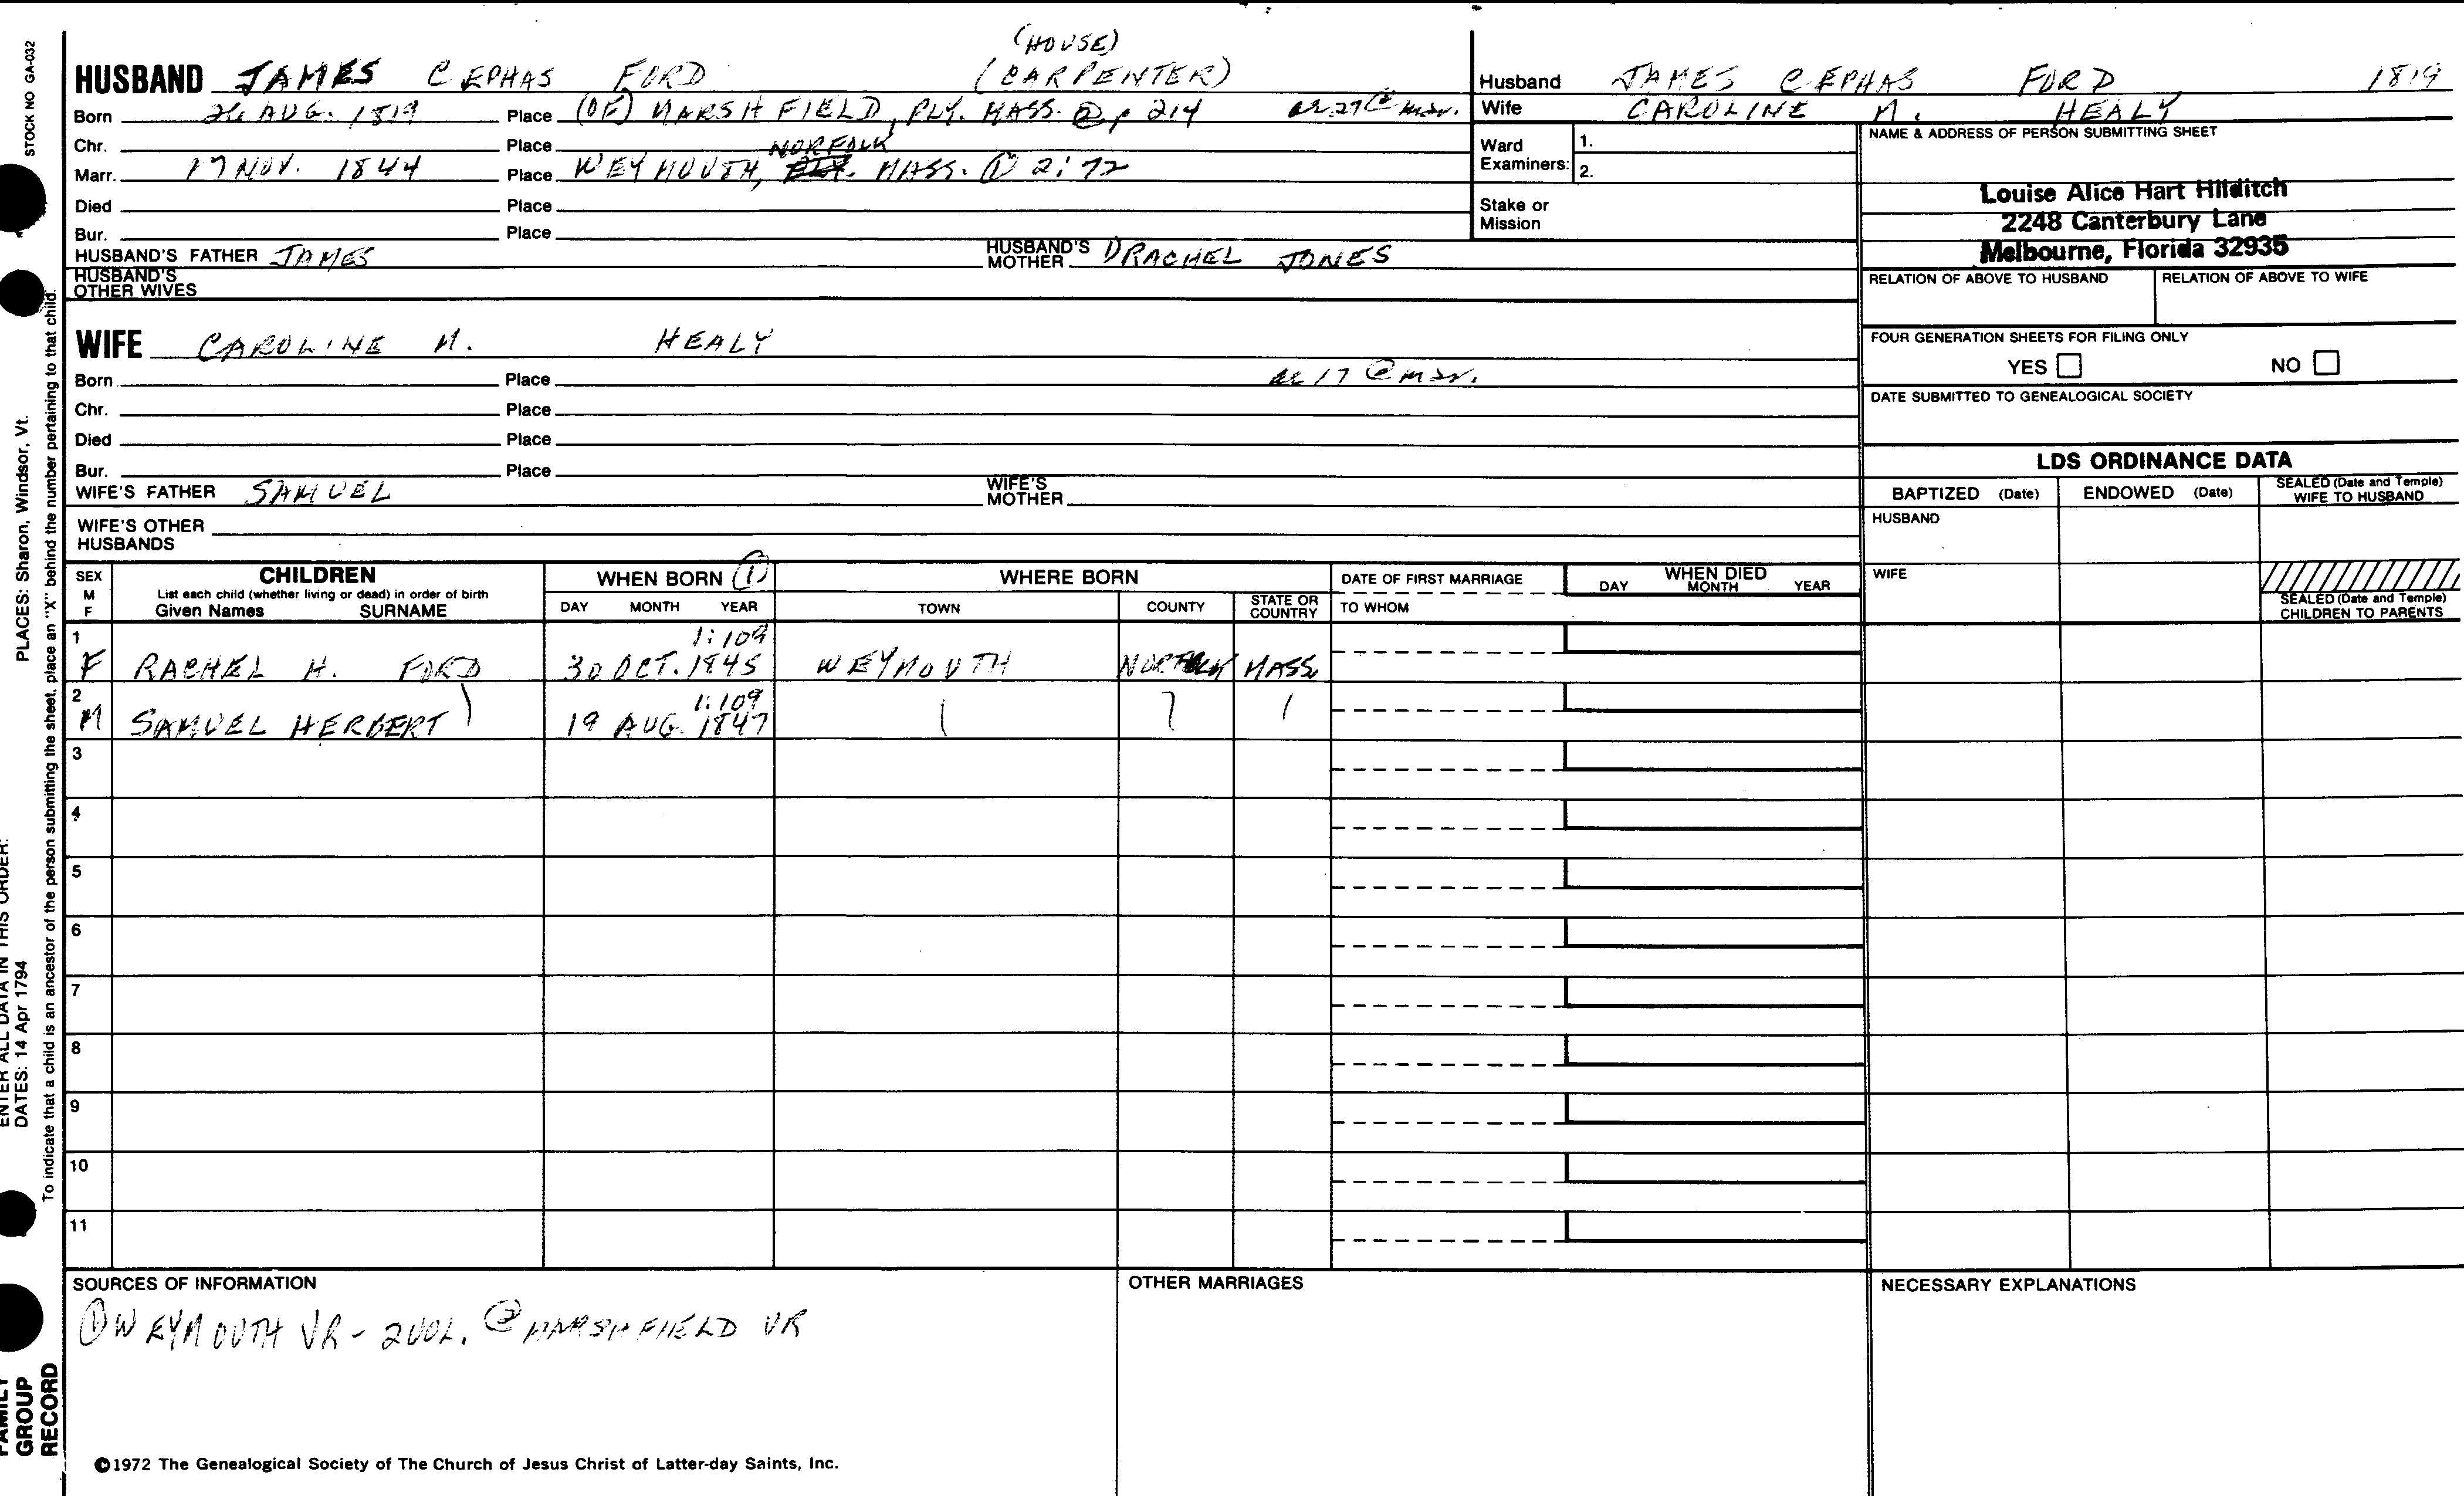 (HOUSE)
HUSBAND JAMES CEPHAS FORD (CARPENTER)
Born 26 AUG. 1819 Place (OF) MARSHFIELD, PLY. MASS. ② p 214 ae 27 @ mar.
Chr. Place NORFOLK
Marr. 17 NOV. 1844 Place WEYMOUTH, PLY. MASS. ① 2:72
Died Place
Bur. Place
HUSBAND'S FATHER JAMES HUSBAND'S MOTHER ① RACHEL JONES
HUSBAND'S
OTHER WIVES
WIFE CAROLINE M. HEALY
Born Place ae 17 @ mar.
Chr. Place
Died Place
Bur. Place
WIFE'S FATHER SAMUEL WIFE'S MOTHER
WIFE'S OTHER
HUSBANDS
Husband JAMES CEPHAS FORD 1819
Wife CAROLINE M. HEALY
Ward
Examiners:
1.
2.
Stake or
Mission
NAME & ADDRESS OF PERSON SUBMITTING SHEET
Louise Alice Hart Hilditch
2248 Canterbury Lane
Melbourne, Florida 32935
RELATION OF ABOVE TO HUSBAND RELATION OF ABOVE TO WIFE
FOUR GENERATION SHEETS FOR FILING ONLY
YES NO
DATE SUBMITTED TO GENEALOGICAL SOCIETY
LDS ORDINANCE DATA
BAPTIZED (Date) ENDOWED (Date) SEALED (Date and Temple)
WIFE TO HUSBAND
HUSBAND
WIFE
SEALED (Date and Temple)
CHILDREN TO PARENTS
SEX
M
F
CHILDREN
List each child (whether living or dead) in order of birth
Given Names SURNAME
WHEN BORN ①
DAY MONTH YEAR
WHERE BORN
TOWN COUNTY STATE OR COUNTRY
DATE OF FIRST MARRIAGE
TO WHOM
WHEN DIED
DAY MONTH YEAR
1 1:109
F RACHEL H. FORD 30 OCT. 1845 WEYMOUTH NORFOLK MASS.
2 1:109
M SAMUEL HERBERT 19 AUG. 1847
3
4
5
6
7
8
9
10
11
SOURCES OF INFORMATION
① WEYMOUTH VR - 2 VOL. ② MARSHFIELD VR
OTHER MARRIAGES
NECESSARY EXPLANATIONS
©1972 The Genealogical Society of The Church of Jesus Christ of Latter-day Saints, Inc.
STOCK NO GA-032
PLACES: Sharon, Windsor, Vt.
ENTER ALL DATA IN THIS ORDER:
DATES: 14 Apr 1794
To indicate that a child is an ancestor of the person submitting the sheet, place an "X" behind the number pertaining to that child.
FAMILY
GROUP
RECORD